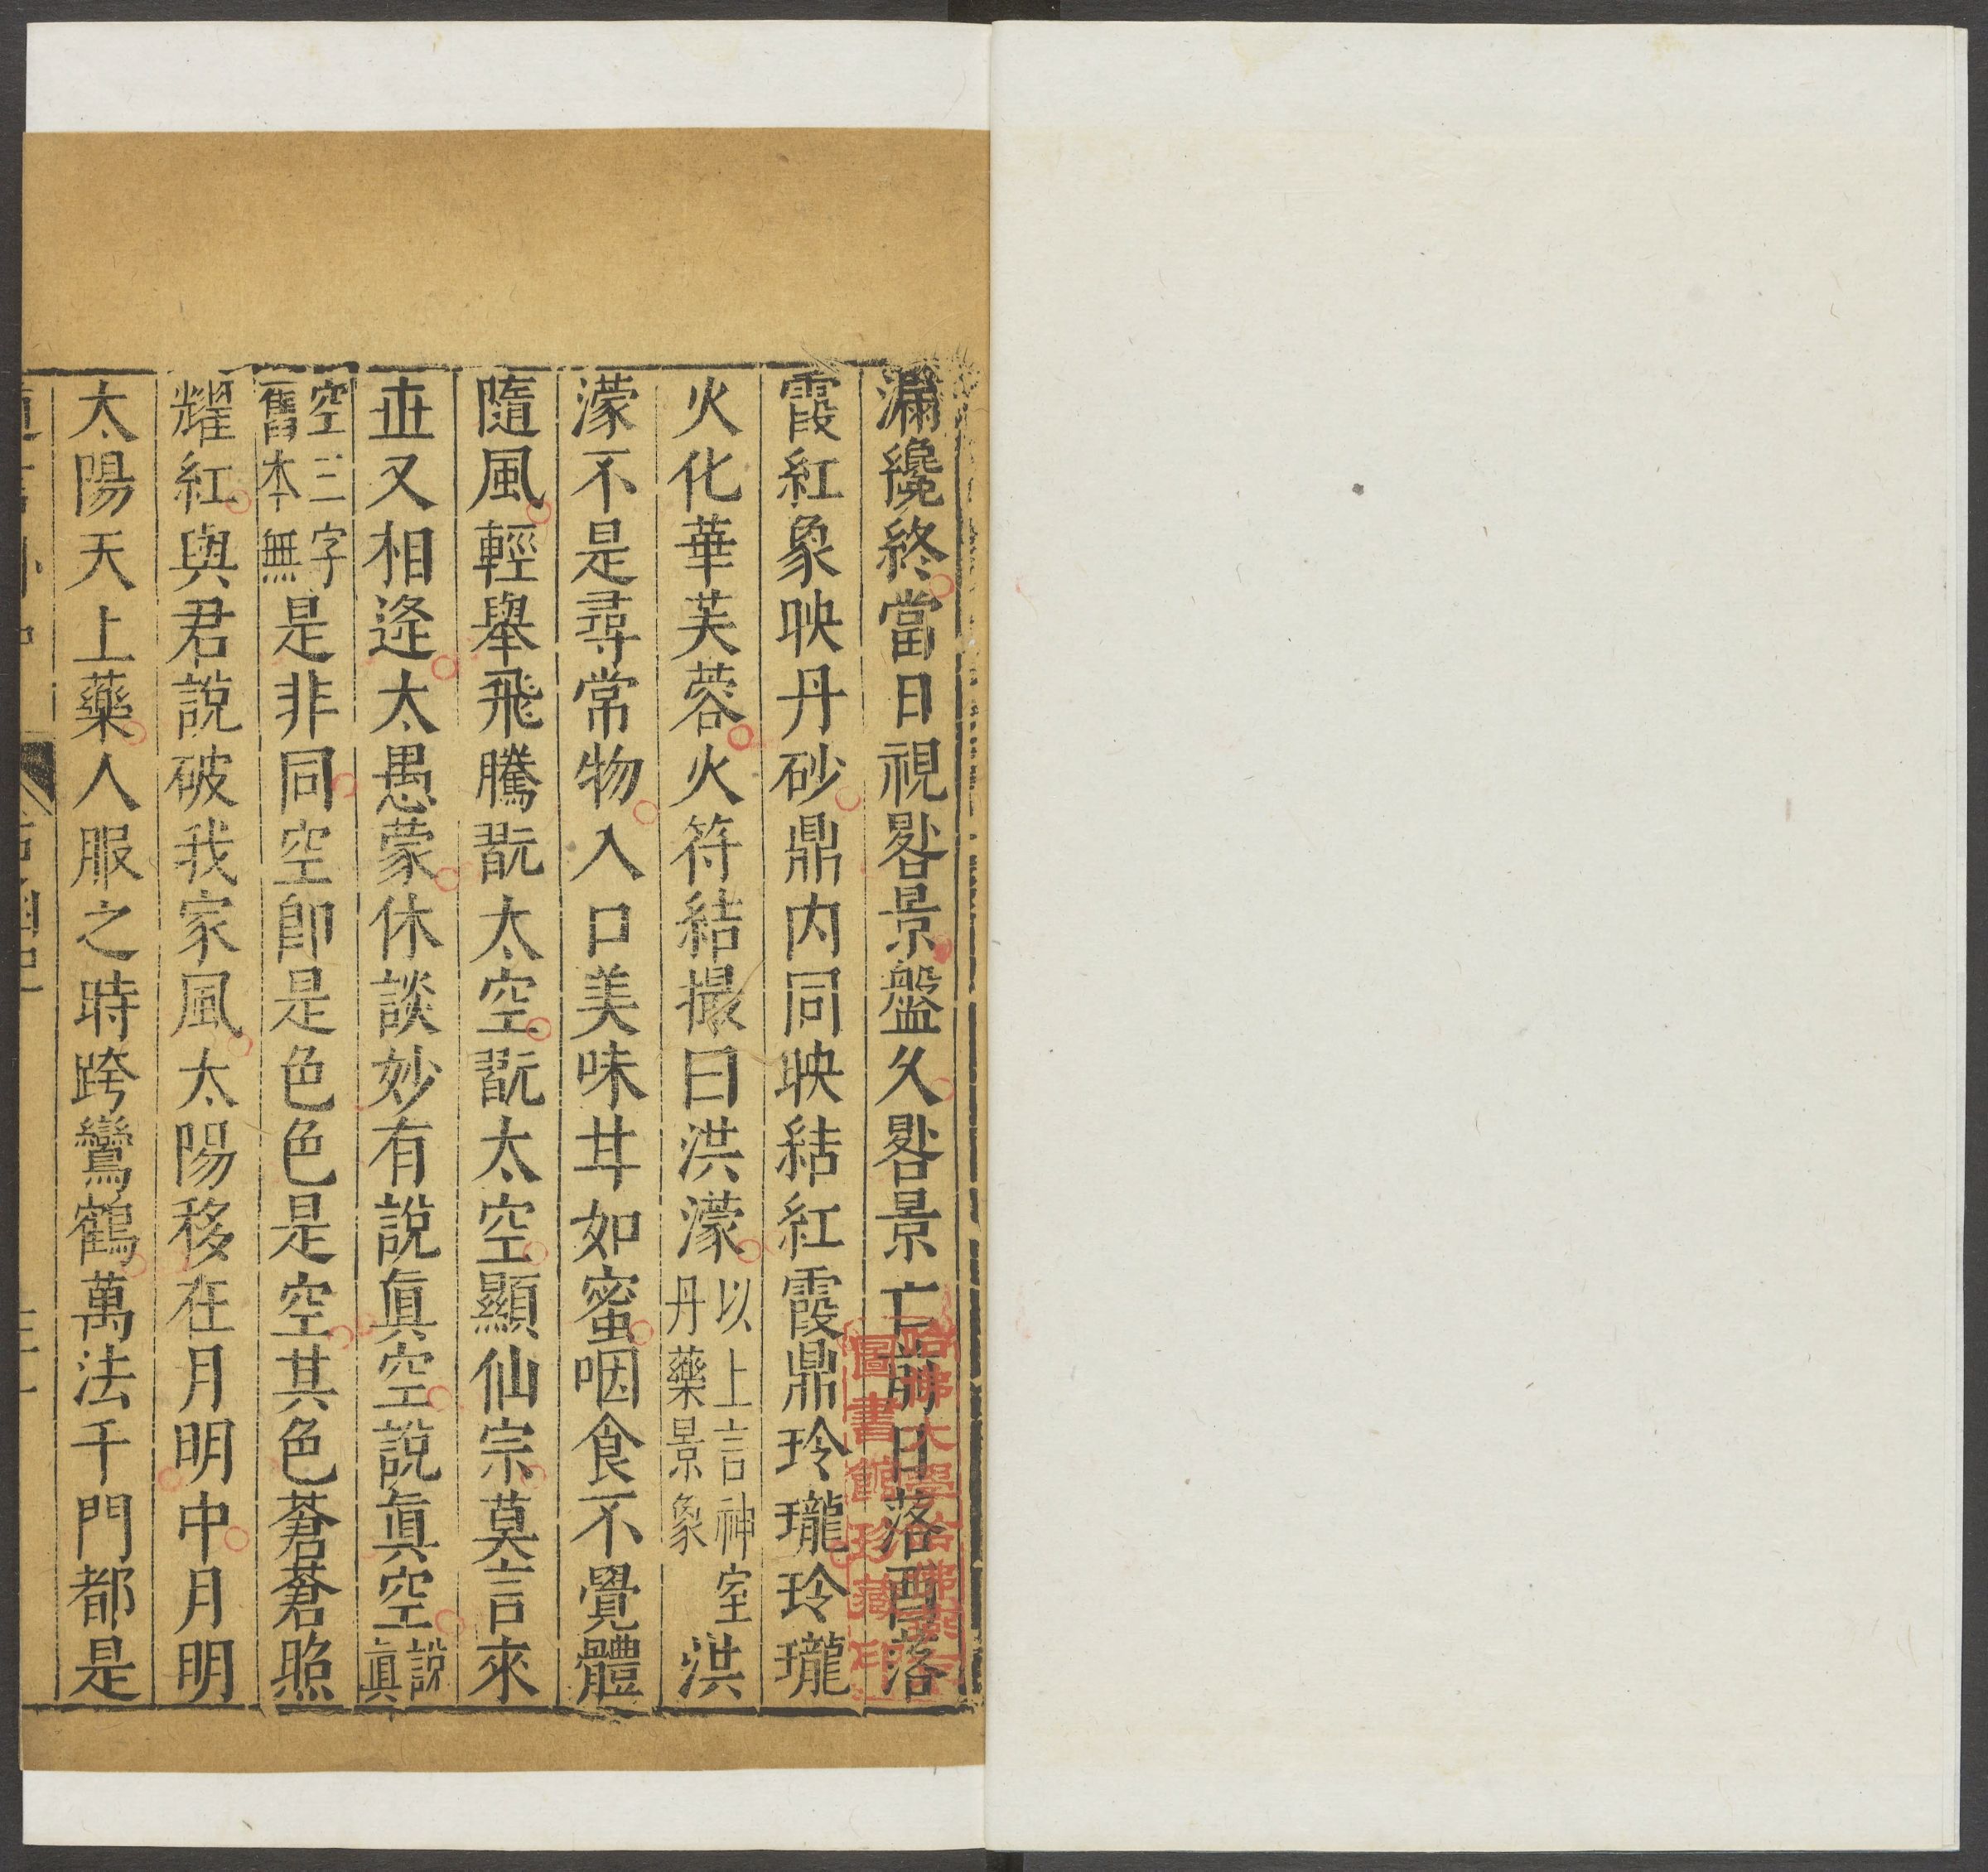 漏纔終當日視晷景盤久晷景亡前日落西落
霞紅象映丹砂鼎内同映結紅霞鼎玲瓏玲瓏
火化華芙蓉火符結撮曰洪濛以上言神室丹藥景象洪
濛不是尋常物入口美味甘如蜜咽食不覺體
隨風輕舉飛騰翫太空翫太空顯仙宗莫言來
丗又相逢太愚蒙休談妙有說眞空說眞空說眞
空三字舊本無是非同空卽是色色是空其色蒼蒼照
耀紅與君說破我家風太陽移在月明中月明
太陽天上藥人服之時跨鸞鶴萬法千門都是
哈佛大學哈佛燕京
圖書館珍藏印